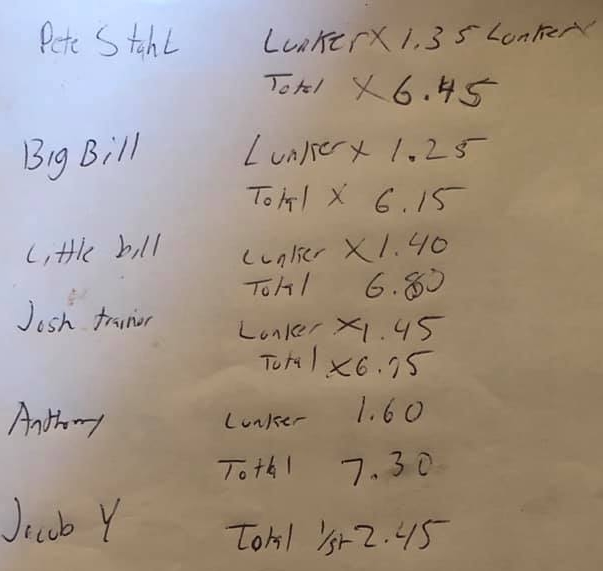 Pete Stahl Lunker X 1.35 Lunker X
Total X 6.45
Big Bill Lunker X 1.25
Total X 6.15
Little bill Lunker X 1.40
Total 6.80
Josh trainor Lunker X 1.45
Total X 6.75
Anthony Lunker 1.60
Total 7.30
Jacob Y Total 2.45